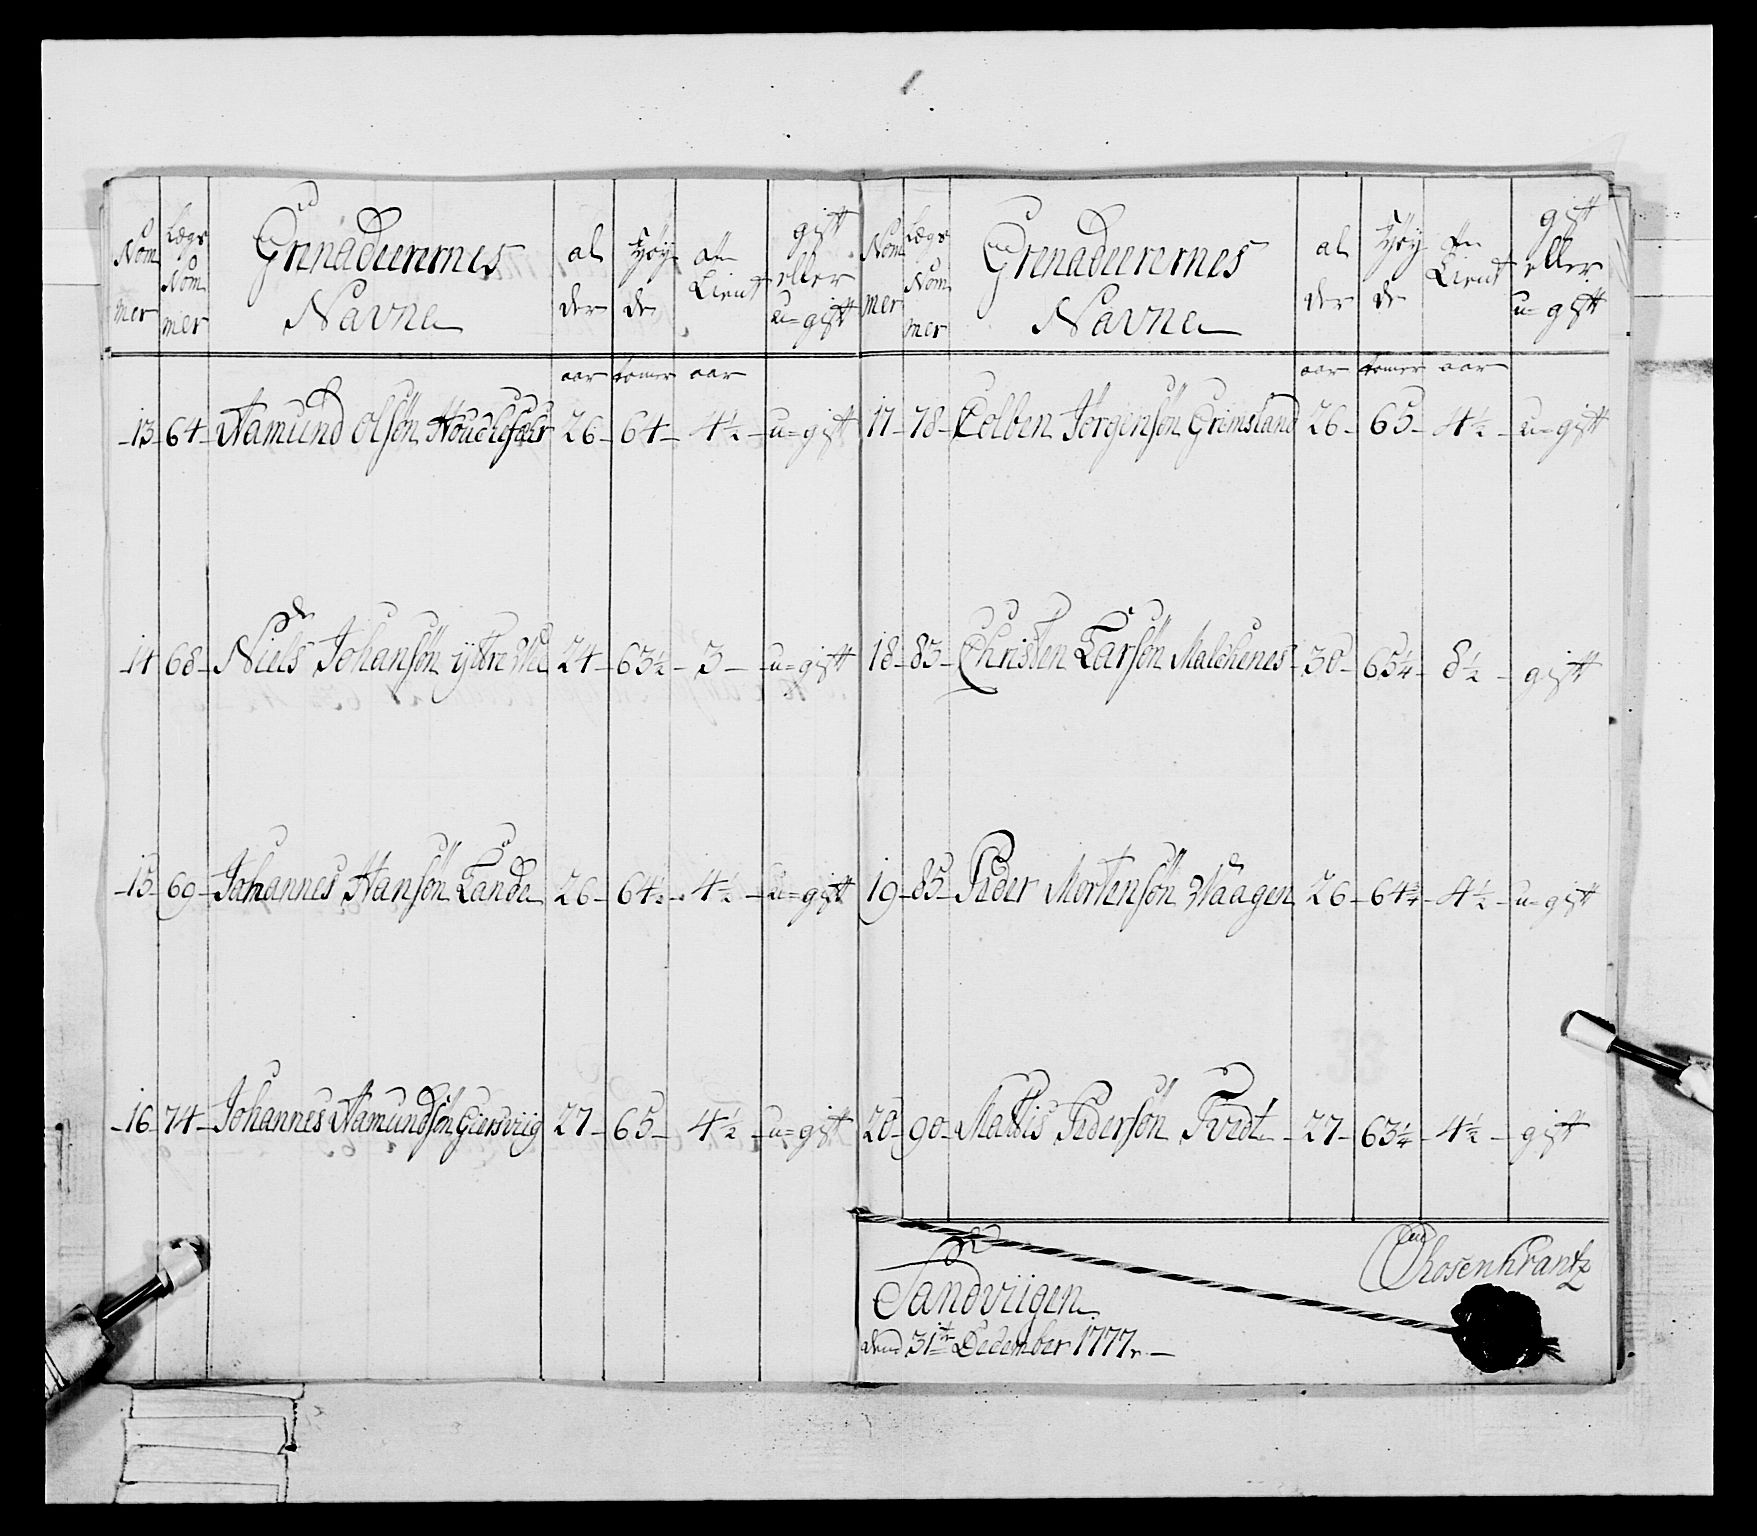 Nom mer
Lægs Nom mer
Grenadeerernes Navne
al der
Høy de
Tient
gift eller u-gift
aar tomer aar
13 64 Aamund Olsøn 26 64 4½ u=gift
14 68 Niels Johansøn ÿttre 24 63½ 3 u=gift
15 69 Johannes Hansøn Lande 26 64½ 4½ u=gift
16 74 Johannes Aamundsøn Giersviig 27 65 4½ u=gift
Nom mer
Lægs Nom mer
Grenadeerernes Navne
al der
Høy de
Tient
gift eller u-gift
aar tomer aar
17 78 Colben Jørgensøn Grimsland 26 65 4½ u=gift
18 83 Christen Larsøn Malchenes 30 65¼ 8½ gift
19 85 Peder Mortensøn Waagen 26 64¾ 4½ u=gift
20 90 Mattis Pedersøn Tvedt 27 63¼ 4½ gift
Sandviigen
dend 31te December 1777
Rosenkrantz